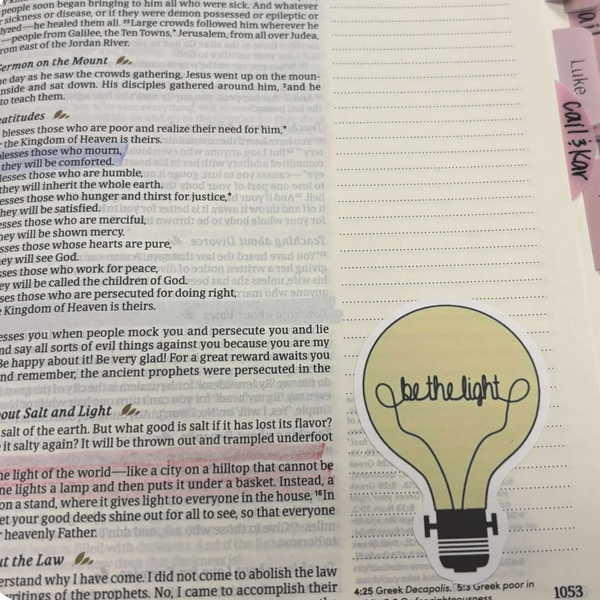 people soon began bringing to him all who were sick. And whatever
sickness or disease, or if they were demon possessed or epileptic or
—he healed them all. ²⁵Large crowds followed him wherever he
—people from Galilee, the Ten Towns,* Jerusalem, from all over Judea,
from east of the Jordan River.
Sermon on the Mount
day as he saw the crowds gathering, Jesus went up on the moun-
and sat down. His disciples gathered around him, ²and he
to teach them.
blesses those who are poor and realize their need for him,*
the Kingdom of Heaven is theirs.
blesses those who mourn,
they will be comforted.
those who are humble,
they will inherit the whole earth.
those who hunger and thirst for justice,*
they will be satisfied.
those who are merciful,
they will be shown mercy.
those whose hearts are pure,
they will see God.
those who work for peace,
they will be called the children of God.
those who are persecuted for doing right,
Kingdom of Heaven is theirs.
you when people mock you and persecute you and lie
and say all sorts of evil things against you because you are my
Be happy about it! Be very glad! For a great reward awaits you
and remember, the ancient prophets were persecuted in the
about Salt and Light
salt of the earth. But what good is salt if it has lost its flavor?
it salty again? It will be thrown out and trampled underfoot
the light of the world—like a city on a hilltop that cannot be
one lights a lamp and then puts it under a basket. Instead, a
on a stand, where it gives light to everyone in the house. ¹⁶In
let your good deeds shine out for all to see, so that everyone
heavenly Father.
the Law
understand why I have come. I did not come to abolish the law
writings of the prophets. No, I came to accomplish their
be the light
4:25 Greek Decapolis. 5:3 Greek poor in
1053
Luke
call & Kar